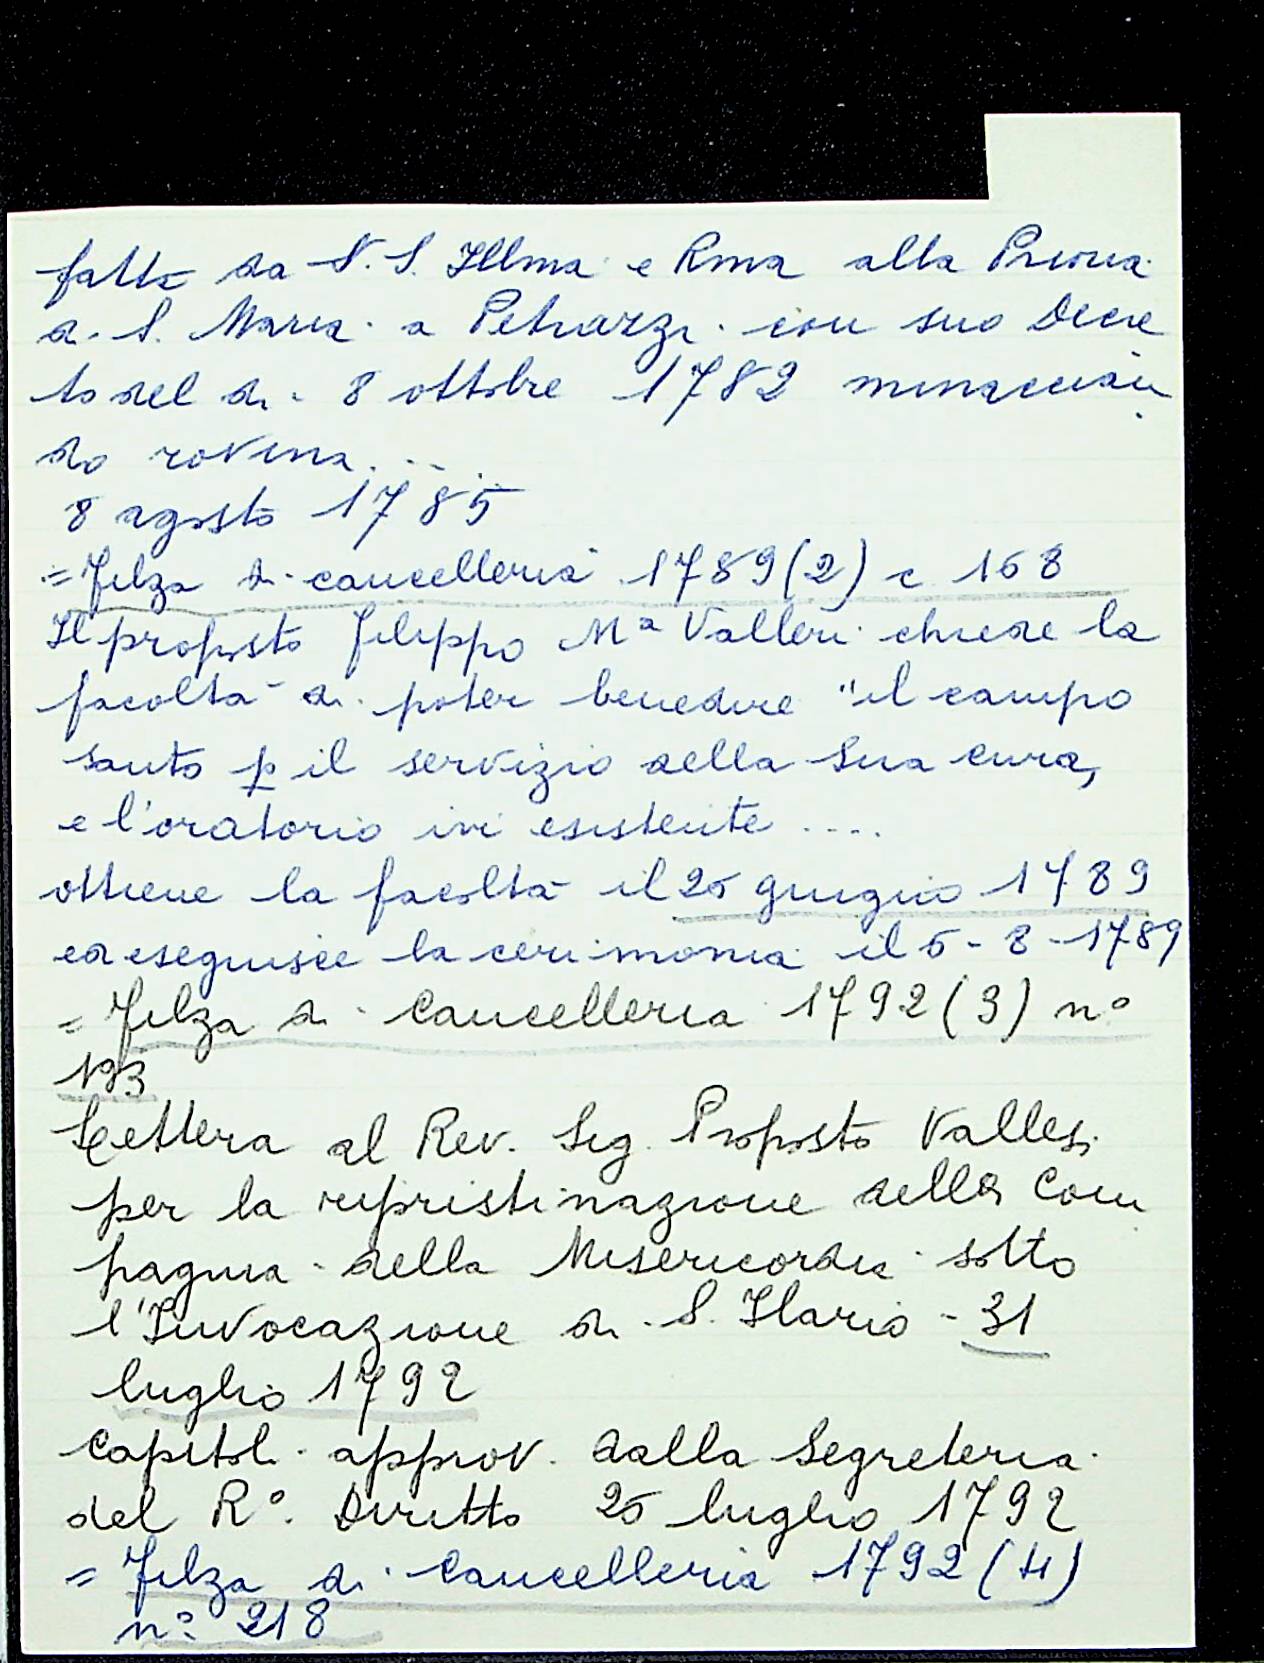 fatta da V. S. Illma e Rma alla Prioria
di S. Maria a Petriazzi con suo Decre
to del di 8 ottobre 1782 minaccian
do rovina....
8 agosto 1785
= Filza di cancelleria 1789 (2) c 168
Il proposto Filippo Mª Vallesi chiede la
facoltà di poter benedire "il campo
santo p il servizio della Sua cura,
e l'oratorio ivi esistente ....
ottiene la facoltà il 25 giugno 1789
ed eseguisce la cerimonia il 5-8-1789
= Filza di Cancelleria 1792 (3) n°
193
Lettera al Rev. Sig. Proposto Vallesi
per la ripristinazione della Com
pagnia della Misericordia sotto
l'Invocazione di S. Ilario - 31
luglio 1792
Capitoli approv. dalla Segreteria
del R°. Diritto 25 luglio 1792
= Filza di Cancelleria 1792 (4)
n° 218